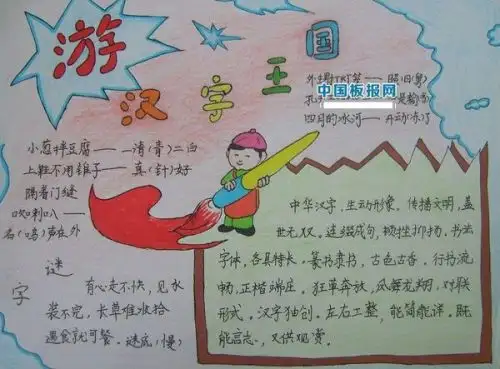 游
汉字王国
外甥打灯笼——照旧(舅)
中国板报网
四月的冰河——开动(冻)了
小葱拌豆腐——一清(青)二白
上鞋不用锥子——真(针)好
隔着门缝
吹喇叭——
名(鸣)声在外
字谜
有心走不快,见水
装不完,长草难收拾
遇食就可餐。谜底(慢)
中华汉字,生动形象。传播文明,盖
世无双。连缀成句,抑挫抑扬。书法
字体,各具特长,篆书隶书,古色古香。行书流
畅,正楷端庄。狂草奔放,凤舞龙翔。对联
形式。汉字独创。左右工整,能简能详。既
能言志,又供观赏。